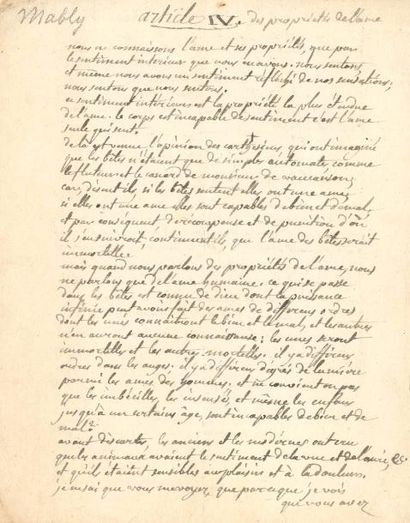 Mably
article IV. des propriétés de l'ame
nous ne connaissons l'ame et ses propriétés, que par
le sentiment intérieur que nous en avons. nous sentons
et meme nous avons un sentiment réfléchi de nos sensations;
nous sentons que nous sentons.
ce sentiment intérieur est la propriété la plus étendue
de l'ame. le corps est incapable de sentiment c'est l'ame
seule qui sent.
de la est venue l'opinion des cartésiens, qui ont imaginé
que les bêtes n'étaient que de simples automates comme
le fluteur et le canard de monsieur de vaucanson;
car, disent ils, si les bêtes sentent elles ont une ame;
si elles ont une ame elles sont capables de bien et de mal,
et par consequent de récompense et de punition d'où
il s'ensuivroit continuent ils, que l'ame des bêtes serait
immortelle.
mais quand nous parlons des propriétés de l'ame, nous
ne parlons que de l'ame humaine. ce qui se passe
dans les bêtes est connu de dieu dont la puissance
infinie peut avoir fait des ames de differens ordres
dont les unes connaitront le bien et le mal, et les autres
n'en auront aucune connaissance: les unes seront
immortelles et les autres mortelles. il y a différens
ordres dans les anges. il y a différens degrés de lumière
parmi les ames des hommes. et ne convient on pas
que les imbécilles, les insensés, et même les enfans
jusqu'à un certain âge, sont incapables de bien et de
mal?
avant descartes, les anciens et les modernes ont cru
que les animaux avaient le sentiment de la vue et de l'ouie, &c.
et qu'ils étaient sensibles au plaisir et à la douleur.
je ne sai que vous me voyez, que parceque je vois
que vous avez